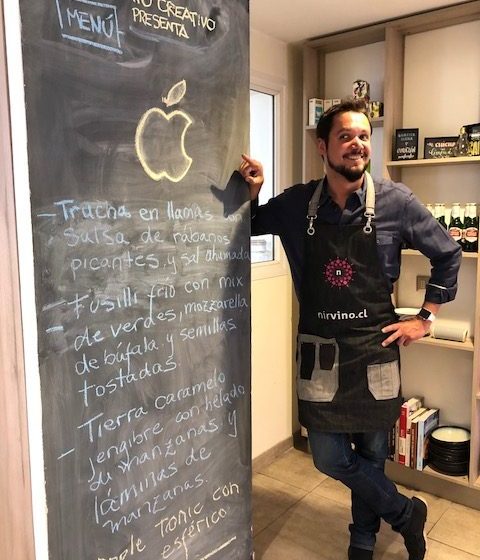 CREATIVO
PRESENTA
MENÚ
- Trucha en llamas con
salsa de rábanos
picantes y sal ahumada
- Fusilli frío con mix
de verdes, mozzarella
de búfala y semillas
tostadas.
- Tierra caramelo
jengibre con helado
de manzanas y
láminas de
manzanas.
Apple Tonic con
esférico
n
nirvino.cl